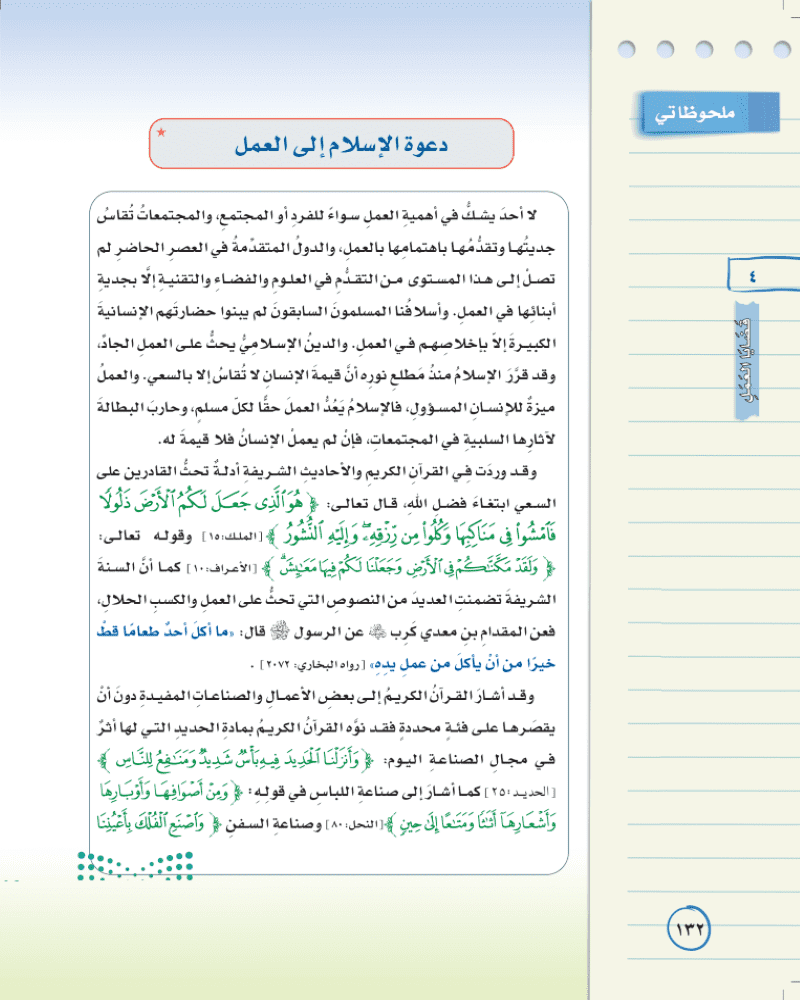 ملحوظاتي
دعوة الإسلام إلى العمل *
لا أحدَ يشكُّ في أهميةِ العملِ سواءً للفردِ أو المجتمعِ، والمجتمعاتُ تُقاسُ
جديتُها وتقدُّمُها باهتمامِها بالعملِ، والدولُ المتقدِّمةُ في العصرِ الحاضرِ لم
تصلْ إلى هذا المستوى من التقدُّمِ في العلومِ والفضاءِ والتقنيةِ إلَّا بجديةِ
أبنائِها في العملِ. وأسلافُنا المسلمونَ السابقونَ لم يبنوا حضارتَهم الإنسانيةَ
الكبيرةَ إلاّ بإخلاصِهم في العملِ. والدينُ الإسلاميُّ يحثُّ على العملِ الجادِّ،
وقد قرَّرَ الإسلامُ منذُ مَطلعِ نورِه أنَّ قيمةَ الإنسانِ لا تُقاسُ إلا بالسعي. والعملُ
ميزةٌ للإنسانِ المسؤولِ، فالإسلامُ يَعُدُّ العملَ حقًّا لكلّ مسلمٍ، وحاربَ البطالةَ
لآثارِها السلبيةِ في المجتمعاتِ، فإنْ لم يعملْ الإنسانُ فلا قيمةَ له.
وقد وردَت في القرآنِ الكريمِ والأحاديثِ الشريفةِ أدلةٌ تحثُّ القادرين على
السعي ابتغاءَ فضلِ اللهِ، قال تعالى: ﴿ هُوَ ٱلَّذِى جَعَلَ لَكُمُ ٱلْأَرْضَ ذَلُولًا
فَٱمْشُوا۟ فِى مَنَاكِبِهَا وَكُلُوا۟ مِن رِّزْقِهِۦ ۖ وَإِلَيْهِ ٱلنُّشُورُ ﴾ [الملك:١٥] وقوله تعالى:
﴿ وَلَقَدْ مَكَّنَّٰكُمْ فِى ٱلْأَرْضِ وَجَعَلْنَا لَكُمْ فِيهَا مَعَٰيِشَ ۗ ﴾ [الأعراف:١٠] كما أنَّ السنةَ
الشريفةَ تضمنتِ العديدَ من النصوصِ التي تحثُّ على العملِ والكسبِ الحلالِ،
فعن المقدامِ بنِ معدي كَرِب رضي الله عنه عن الرسول ﷺ قال: «ما أكلَ أحدٌ طعامًا قطُّ
خيرًا من أنْ يأكلَ من عملِ يدِهِ» [رواه البخاري: ٢٠٧٢] .
وقد أشارَ القرآنُ الكريمُ إلى بعضِ الأعمالِ والصناعاتِ المفيدةِ دونَ أنْ
يقصَرها على فئةٍ محددةٍ فقد نوَّه القرآنُ الكريمُ بمادةِ الحديدِ التي لها أثرٌ
في مجالِ الصناعةِ اليوم: ﴿ وَأَنزَلْنَا ٱلْحَدِيدَ فِيهِ بَأْسٌ شَدِيدٌ وَمَنَٰفِعُ لِلنَّاسِ ﴾
[الحديد:٢٥] كما أشارَ إلى صناعةِ اللباسِ في قولِهِ: ﴿ وَمِنْ أَصْوَافِهَا وَأَوْبَارِهَا
وَأَشْعَارِهَآ أَثَٰثًا وَمَتَٰعًا إِلَىٰ حِينٍ ﴾ [النحل:٨٠] وصناعةِ السفنِ ﴿ وَٱصْنَعِ ٱلْفُلْكَ بِأَعْيُنِنَا
٤
قَضَايَا العَمَلِ
١٣٢